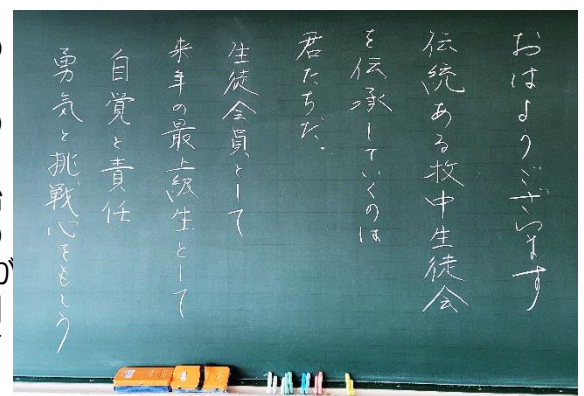 おはようございます
伝統ある牧中生徒会
を伝承していくのは
君たちだ。
生徒会員として
来年の最上級生として
自覚と責任
勇気と挑戦心をもとう